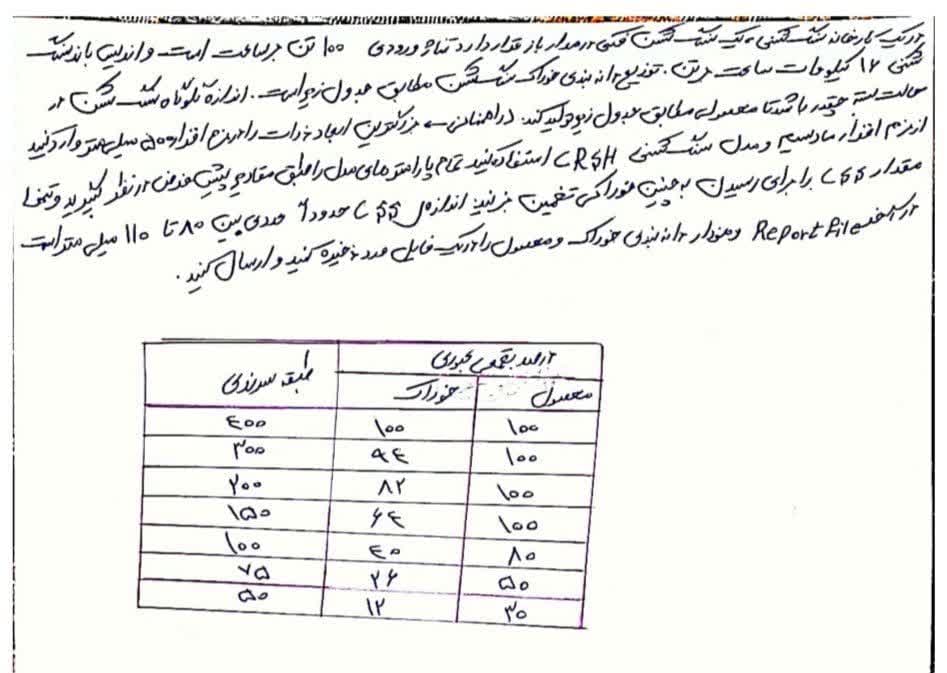 در یک کارخانه سنگ شکنی، یک سنگ شکن فکی در مدار باز قرار دارد تناژ ورودی ۱۰۰ تن بر ساعت است و اندیس باند سنگ
شکنی ۱۶ کیلووات ساعت بر تن. توزیع دانه بندی خوراک سنگ شکن مطابق جدول زیر است. اندازه گلوگاه سنگ شکن در
حالت بسته چقدر باشد تا محصولی مطابق جدول زیر تولید کند. در بزرگترین ابعاد ذرات را در نرم افزار ۵۰۰ میلی متر وارد کنید
از نرم افزار مادسیم و مدل سنگ شکنی CRSH استفاده کنید تمام پارامترهای مدل را طبق مقادیر پیش فرض در نظر بگیرید و تنها
مقدار CSS را برای رسیدن به چنین خوراکی تخمین بزنید اندازه CSS حدودا عددی بین ۸۰ تا ۱۱۰ میلی متر است
در آخر Report File و نمودار دانه بندی خوراک و محصول را در یک فایل ورد ذخیره کنید و ارسال کنید.
طبقه سرندی درصد تجمعی عبوری
خوراک محصول
۴۰۰ ۱۰۰ ۱۰۰
۳۰۰ ۹۴ ۱۰۰
۲۰۰ ۸۲ ۱۰۰
۱۵۰ ۶۴ ۱۰۰
۱۰۰ ۴۰ ۸۰
۷۵ ۲۶ ۵۰
۵۰ ۱۲ ۳۰